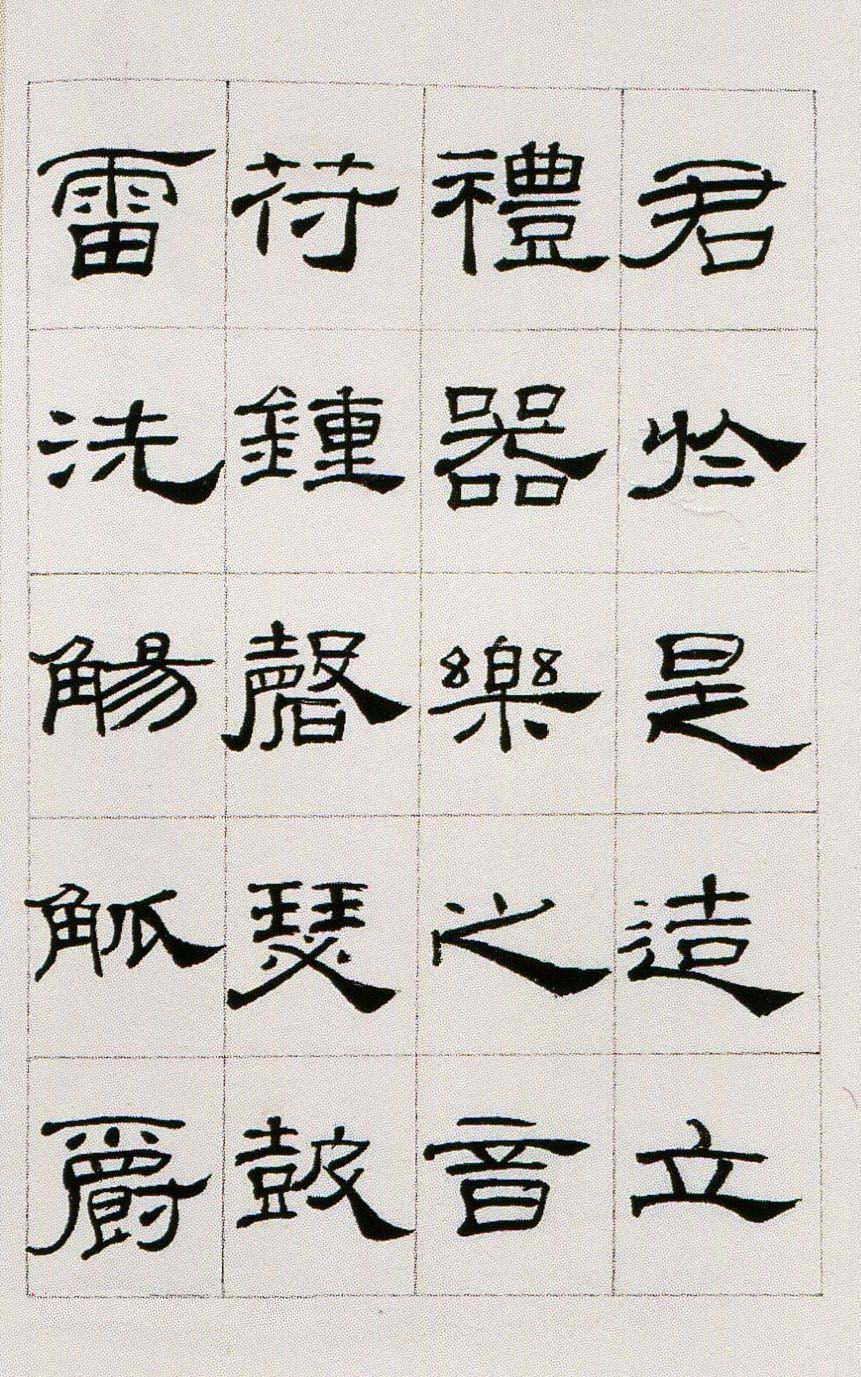 君於是造立
禮器樂之音
荷鍾磬瑟鼓
雷洗觴觚爵